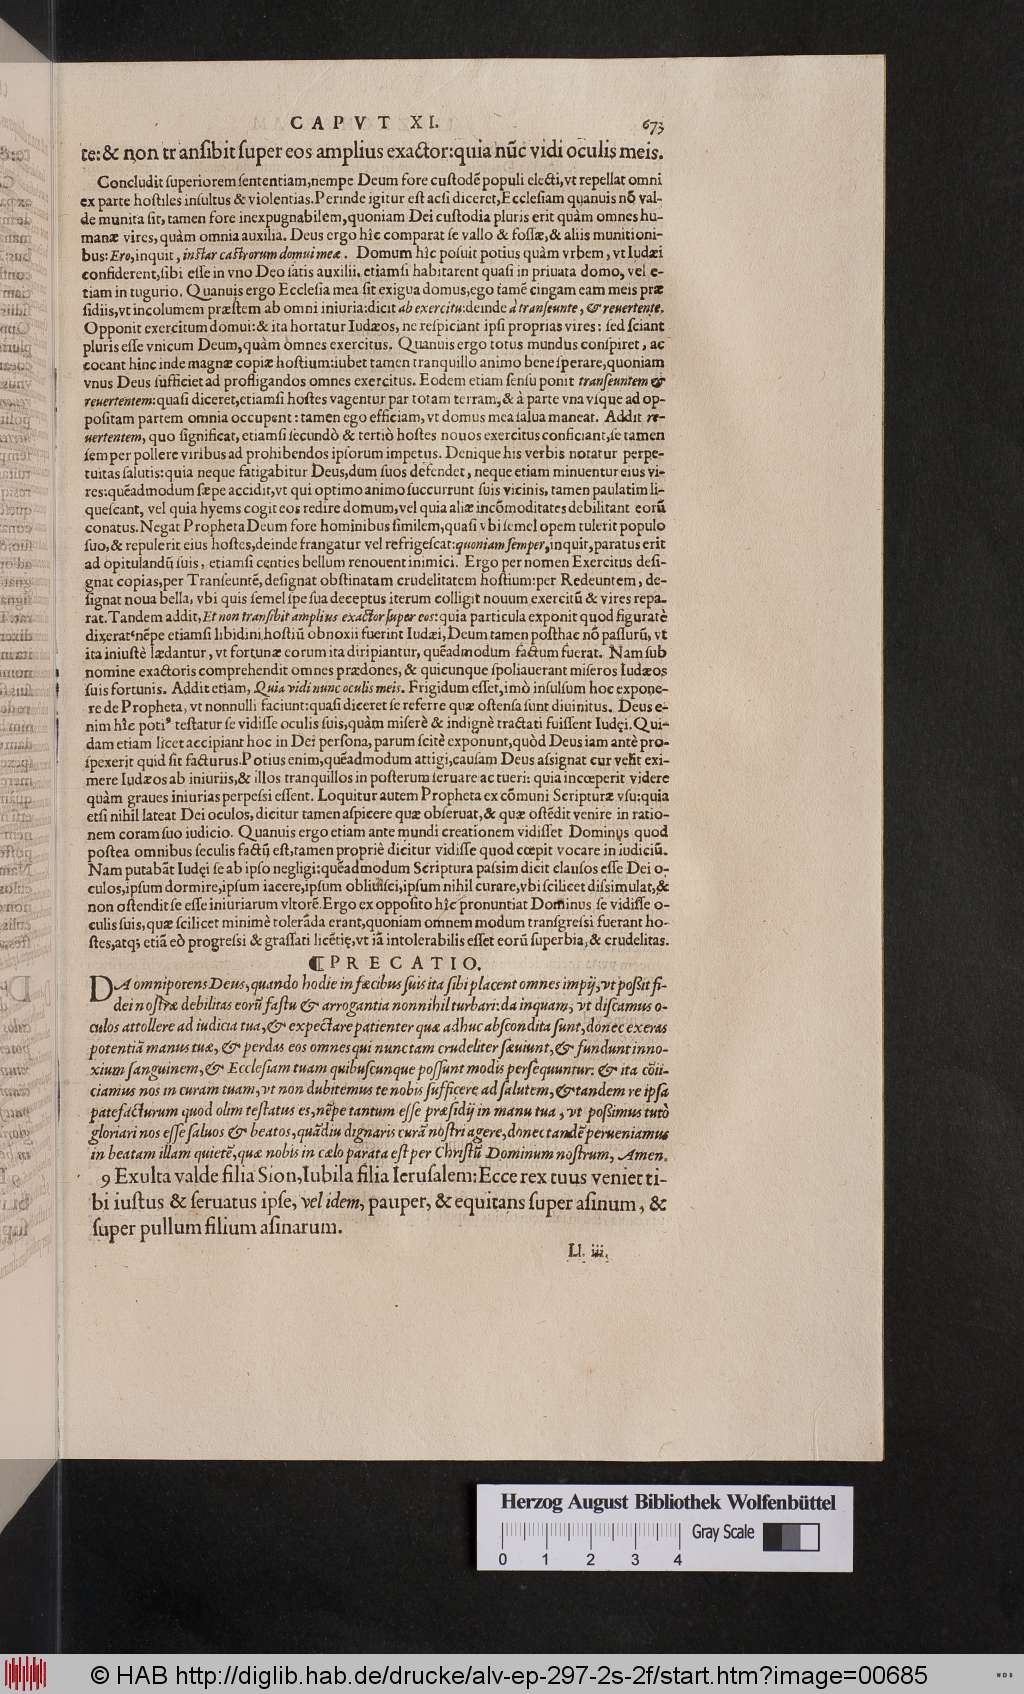 CAPVT XI. 673
te: & non transibit super eos amplius exactor: quia nũc vidi oculis meis.
Concludit superiorem sententiam, nempe Deum fore custodẽ populi electi, vt repellat omni
ex parte hostiles insultus & violentias. Perinde igitur est acsi diceret, Ecclesiam quanuis nõ val-
de munita sit, tamen fore inexpugnabilem, quoniam Dei custodia pluris erit quàm omnes hu-
manæ vires, quàm omnia auxilia. Deus ergo hîc comparat se vallo & fossæ, & aliis munitioni-
bus: Ero, inquit, instar castrorum domui meæ. Domum hîc posuit potius quàm vrbem, vt Iudæi
confiderent, sibi esse in vno Deo satis auxilii, etiamsi habitarent quasi in priuata domo, vel e-
tiam in tugurio. Quanuis ergo Ecclesia mea sit exigua domus, ego tamẽ cingam eam meis præ
sidiis, vt incolumem præstem ab omni iniuria: dicit ab exercitu: deinde à transeunte, & reuertente.
Opponit exercitum domui: & ita hortatur Iudæos, ne respiciant ipsi proprias vires: sed sciant
pluris esse vnicum Deum, quàm omnes exercitus. Quanuis ergo totus mundus conspiret, ac
coeant hinc inde magnæ copiæ hostium: iubet tamen tranquillo animo bene sperare, quoniam
vnus Deus sufficiet ad profligandos omnes exercitus. Eodem etiam sensu ponit transeuntem &
reuertentem: quasi diceret, etiamsi hostes vagentur par totam terram, & à parte vna vsque ad op-
positam partem omnia occupent: tamen ego efficiam, vt domus mea salua maneat. Addit re-
uertentem, quo significat, etiamsi secundò & tertiò hostes nouos exercitus conficiant, se tamen
semper pollere viribus ad prohibendos ipsorum impetus. Denique his verbis notatur perpe-
tuitas salutis: quia neque fatigabitur Deus, dum suos defendet, neque etiam minuentur eius vi-
res: quẽadmodum sæpe accidit, vt qui optimo animo succurrunt suis vicinis, tamen paulatim li-
quescant, vel quia hyems cogit eos redire domum, vel quia aliæ incõmoditates debilitant eorũ
conatus. Negat Propheta Deum fore hominibus similem, quasi vbi semel opem tulerit populo
suo, & repulerit eius hostes, deinde frangatur vel refrigescat: quoniam semper, inquit, paratus erit
ad opitulandũ suis, etiamsi centies bellum renouent inimici. Ergo per nomen Exercitus desi-
gnat copias, per Transeuntẽ, designat obstinatam crudelitatem hostium: per Redeuntem, de-
signat noua bella, vbi quis semel spe sua deceptus iterum colligit nouum exercitũ & vires repa-
rat. Tandem addit, Et non transibit amplius exactor super eos: quia particula exponit quod figuratè
dixerat: nẽpe etiamsi libidini hostiũ obnoxii fuerint Iudæi, Deum tamen posthac nõ passurũ, vt
ita iniustè lædantur, vt fortunæ eorum ita diripiantur, quẽadmodum factum fuerat. Nam sub
nomine exactoris comprehendit omnes prædones, & quicunque spoliauerant miseros Iudæos
suis fortunis. Addit etiam, Quia vidi nunc oculis meis. Frigidum esset, imò insulsum hoc expone-
re de Propheta, vt nonnulli faciunt: quasi diceret se referre quæ ostensa sunt diuinitus. Deus e-
nim hîc potiꝰ testatur se vidisse oculis suis, quàm miserè & indignè tractati fuissent Iudęi. Qui-
dam etiam licet accipiant hoc in Dei persona, parum scitè exponunt, quòd Deus iam antè pro-
spexerit quid sit facturus. Potius enim, quẽadmodum attigi, causam Deus assignat cur velit exi-
mere Iudæos ab iniuriis, & illos tranquillos in posterum seruare ac tueri: quia incœperit videre
quàm graues iniurias perpessi essent. Loquitur autem Propheta ex cõmuni Scripturæ vsu: quia
etsi nihil lateat Dei oculos, dicitur tamen aspicere quæ obseruat, & quæ ostẽdit venire in ratio-
nem coram suo iudicio. Quanuis ergo etiam ante mundi creationem vidisset Dominus quod
postea omnibus seculis factũ est, tamen propriè dicitur vidisse quod cœpit vocare in iudiciũ.
Nam putabãt Iudęi se ab ipso negligi: quẽadmodum Scriptura passim dicit clausos esse Dei o-
culos, ipsum dormire, ipsum iacere, ipsum obliuisci, ipsum nihil curare, vbi scilicet dissimulat, &
non ostendit se esse iniuriarum vltorẽ. Ergo ex opposito hîc pronuntiat Dominus se vidisse o-
culis suis, quæ scilicet minimè tolerãda erant, quoniam omnem modum transgressi fuerant ho-
stes, atq; etiã eò progressi & grassati licẽtię, vt iã intolerabilis esset eorũ superbia, & crudelitas.
¶ PRECATIO.
DA omnipotens Deus, quando hodie in fæcibus suis ita sibi placent omnes impij, vt possit fi-
dei nostræ debilitas eorũ fastu & arrogantia nonnihil turbari: da inquam, vt discamus o-
culos attollere ad iudicia tua, & expectare patienter quæ adhuc abscondita sunt, donec exeras
potentiã manus tuæ, & perdas eos omnes qui nunc tam crudeliter sæuiunt, & fundunt inno-
xium sanguinem, & Ecclesiam tuam quibuscunque possunt modis persequuntur: & ita cõii-
ciamus nos in curam tuam, vt non dubitemus te nobis sufficere ad salutem, & tandem re ipsa
patefacturum quod olim testatus es, nẽpe tantum esse præsidij in manu tua, vt possimus tutò
gloriari nos esse saluos & beatos, quãdiu dignaris curã nostri agere, donec tandẽ perueniamus
in beatam illam quietẽ, quæ nobis in cælo parata est per Christũ Dominum nostrum, Amen.
9 Exulta valde filia Sion, Iubila filia Ierusalem: Ecce rex tuus veniet ti-
bi iustus & seruatus ipse, vel idem, pauper, & equitans super asinum, &
super pullum filium asinarum.
Ll. iii.
Herzog August Bibliothek Wolfenbüttel
Gray Scale
0 1 2 3 4
© HAB http://diglib.hab.de/drucke/alv-ep-297-2s-2f/start.htm?image=00685